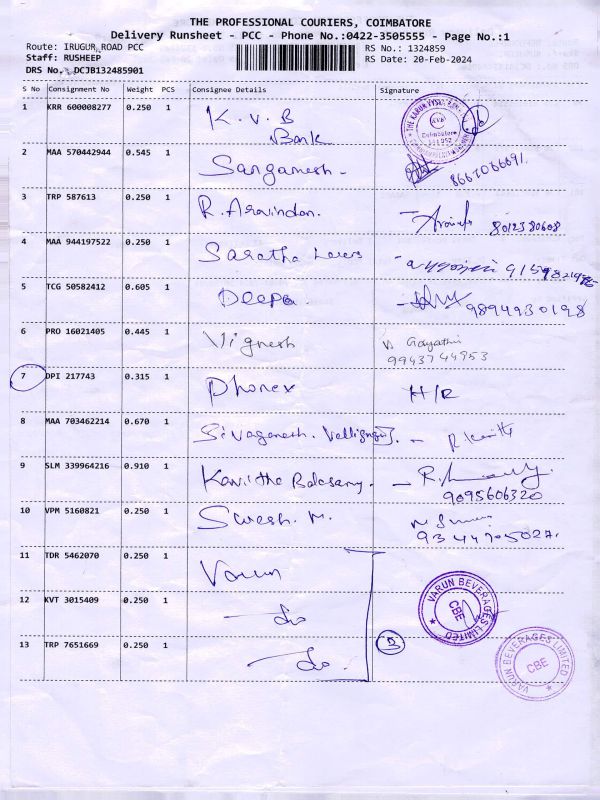 THE PROFESSIONAL COURIERS, COIMBATORE
Delivery Runsheet - PCC - Phone No.:0422-3505555 - Page No.:1
Route: IRUGUR ROAD PCC
RS No.: 1324859
Staff: RUSHEEP
RS Date: 20-Feb-2024
DRS No.: DCJB132485901
S No Consignment No Weight PCS Consignee Details Signature
1 KRR 600008277 0.250 1 K.V.B
Bank
2 MAA 570442944 0.545 1 Sangamesh -
3 TRP 587613 0.250 1 R. Aravindan. 8012380608
4 MAA 944197522 0.250 1 Saratha
5 TCG 50582412 0.605 1 Deepa. 9894930198
6 PRO 16021405 0.445 1 Vignesh V Gayathri
9943744953
7 DPI 217743 0.315 1 Phonex H/R
8 MAA 703462214 0.670 1 Sivaganesh.
9 SLM 339964216 0.910 1 Kavitha Balasamy.
9095606320
10 VPM 5160821 0.250 1 Suresh. M.
9344705027.
11 TDR 5462070 0.250 1 Varun
12 KVT 3015409 0.250 1 Do
VARUN BEVERAGES LIMITED
CBE
13 TRP 7651669 0.250 1 Do. 3
VARUN BEVERAGES LIMITED
CBE